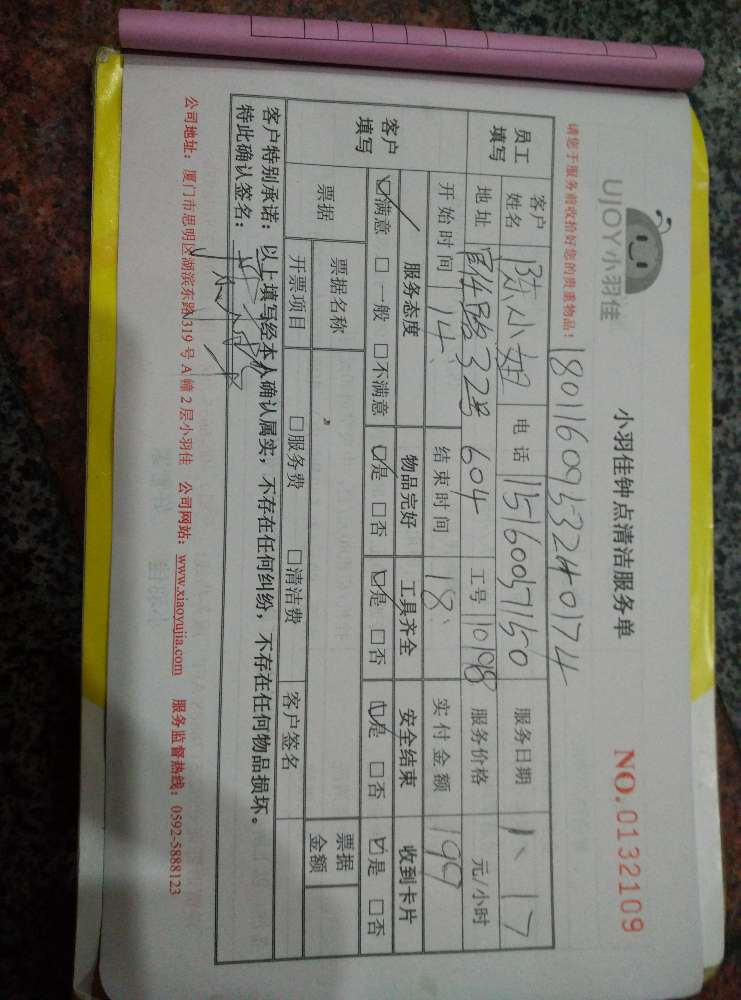 UJOY小羽佳
小羽佳钟点清洁服务单
NO.0132109
请您于服务前收拾好您的贵重物品！
18011609532240174
员工填写 客户姓名 陈小姐 电话 15160057150 服务日期 1、17
地址 32号604 工号 110198 服务价格 元/小时
开始时间 14： 结束时间 18： 实付金额 199
客户填写 服务态度 物品完好 工具齐全 安全结束 收到卡片
☑满意 □一般 □不满意 ☑是 □否 ☑是 □否 ☑是 □否 ☑是 □否
票据 票据名称 票据金额
开票项目 □服务费 □清洁费 客户签名
客户特别承诺：以上填写经本人确认属实，不存在任何纠纷，不存在任何物品损坏。
特此确认签名：
公司地址：厦门市思明区湖滨东路319号A幢2层小羽佳 公司网站：www.xiaoyujia.com 服务监督热线：0592-5888123